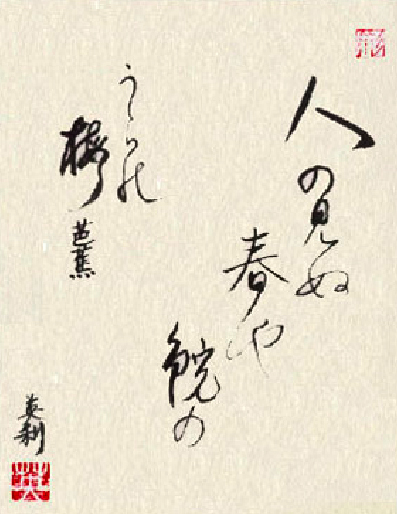 人の見ぬ
春や
鏡の
うらの
梅
芭蕉
英利